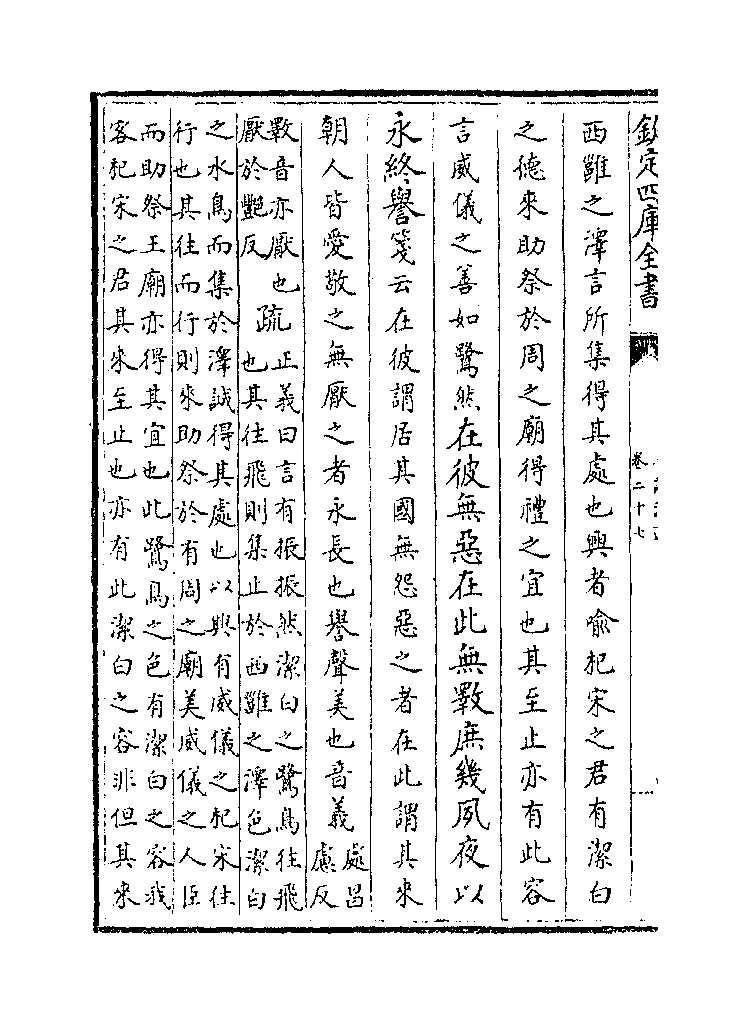 欽定四庫全書
卷二十七
西雝之澤言所集得其處也興者喻杞宋之君有潔白
之德來助祭於周之廟得禮之宜也其至止亦有此容
言威儀之善如鷺然在彼無惡在此無斁庶幾夙夜以
永終譽箋云在彼謂居其國無怨惡之者在此謂其來
朝人皆愛敬之無厭之者永長也譽聲美也音義處昌
慮反
斁音亦厭也
厭於豔反
疏正義曰言有振振然潔白之鷺鳥往飛
也其往飛則集止於西雝之澤色潔白
之水鳥而集於澤誠得其處也以興有威儀之杞宋往
行也其往而行則來助祭於有周之廟美威儀之人臣
而助祭王廟亦得其宜也此鷺鳥之色有潔白之容我
客杞宋之君其來至止也亦有此潔白之容非但其來